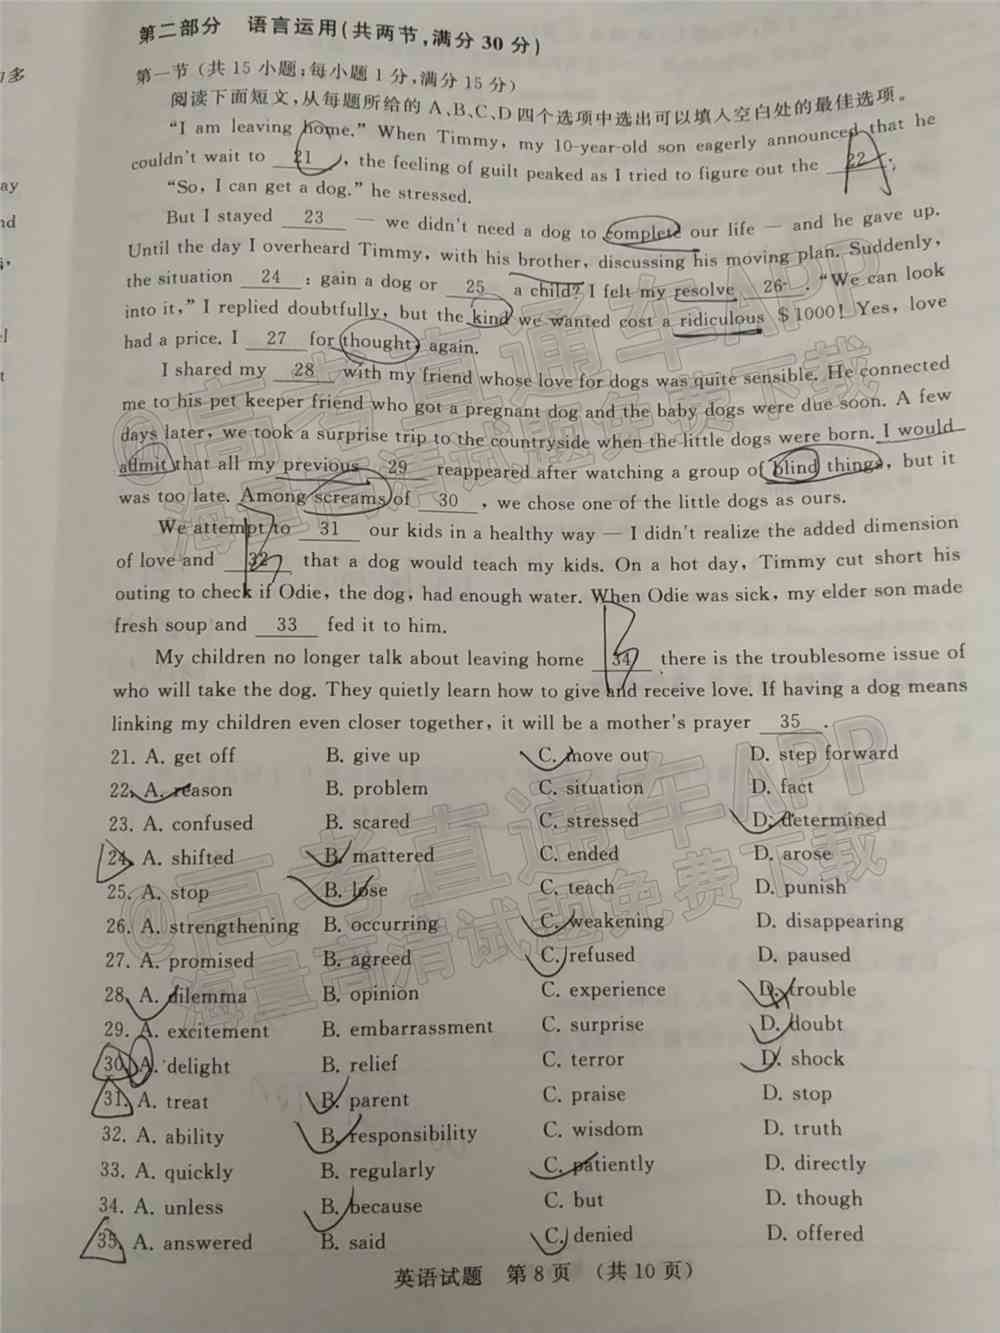 第二部分 语言运用(共两节,满分 30 分)
第一节 (共 15 小题;每小题 1 分,满分 15 分)
阅读下面短文,从每题所给的 A、B、C、D 四个选项中选出可以填入空白处的最佳选项。
"I am leaving home." When Timmy, my 10-year-old son eagerly announced that he
couldn't wait to 21 , the feeling of guilt peaked as I tried to figure out the 22 .
"So, I can get a dog." he stressed.
But I stayed 23 — we didn't need a dog to complete our life — and he gave up.
Until the day I overheard Timmy, with his brother, discussing his moving plan. Suddenly,
the situation 24 : gain a dog or 25 a child? I felt my resolve 26 . "We can look
into it," I replied doubtfully, but the kind we wanted cost a ridiculous $1000! Yes, love
had a price. I 27 for thought, again.
I shared my 28 with my friend whose love for dogs was quite sensible. He connected
me to his pet keeper friend who got a pregnant dog and the baby dogs were due soon. A few
days later, we took a surprise trip to the countryside when the little dogs were born. I would
admit that all my previous 29 reappeared after watching a group of blind things, but it
was too late. Among screams of 30 , we chose one of the little dogs as ours.
We attempt to 31 our kids in a healthy way — I didn't realize the added dimension
of love and 32 that a dog would teach my kids. On a hot day, Timmy cut short his
outing to check if Odie, the dog, had enough water. When Odie was sick, my elder son made
fresh soup and 33 fed it to him.
My children no longer talk about leaving home 34 there is the troublesome issue of
who will take the dog. They quietly learn how to give and receive love. If having a dog means
linking my children even closer together, it will be a mother's prayer 35 .
21. A. get off B. give up C. move out D. step forward
22. A. reason B. problem C. situation D. fact
23. A. confused B. scared C. stressed D. determined
24. A. shifted B. mattered C. ended D. arose
25. A. stop B. lose C. teach D. punish
26. A. strengthening B. occurring C. weakening D. disappearing
27. A. promised B. agreed C. refused D. paused
28. A. dilemma B. opinion C. experience D. trouble
29. A. excitement B. embarrassment C. surprise D. doubt
30. A. delight B. relief C. terror D. shock
31. A. treat B. parent C. praise D. stop
32. A. ability B. responsibility C. wisdom D. truth
33. A. quickly B. regularly C. patiently D. directly
34. A. unless B. because C. but D. though
35. A. answered B. said C. denied D. offered
英语试题 第 8 页 (共 10 页)
@高考直通车APP
海量高清试题免费下载
@高考直通车APP
海量高清试题免费下载